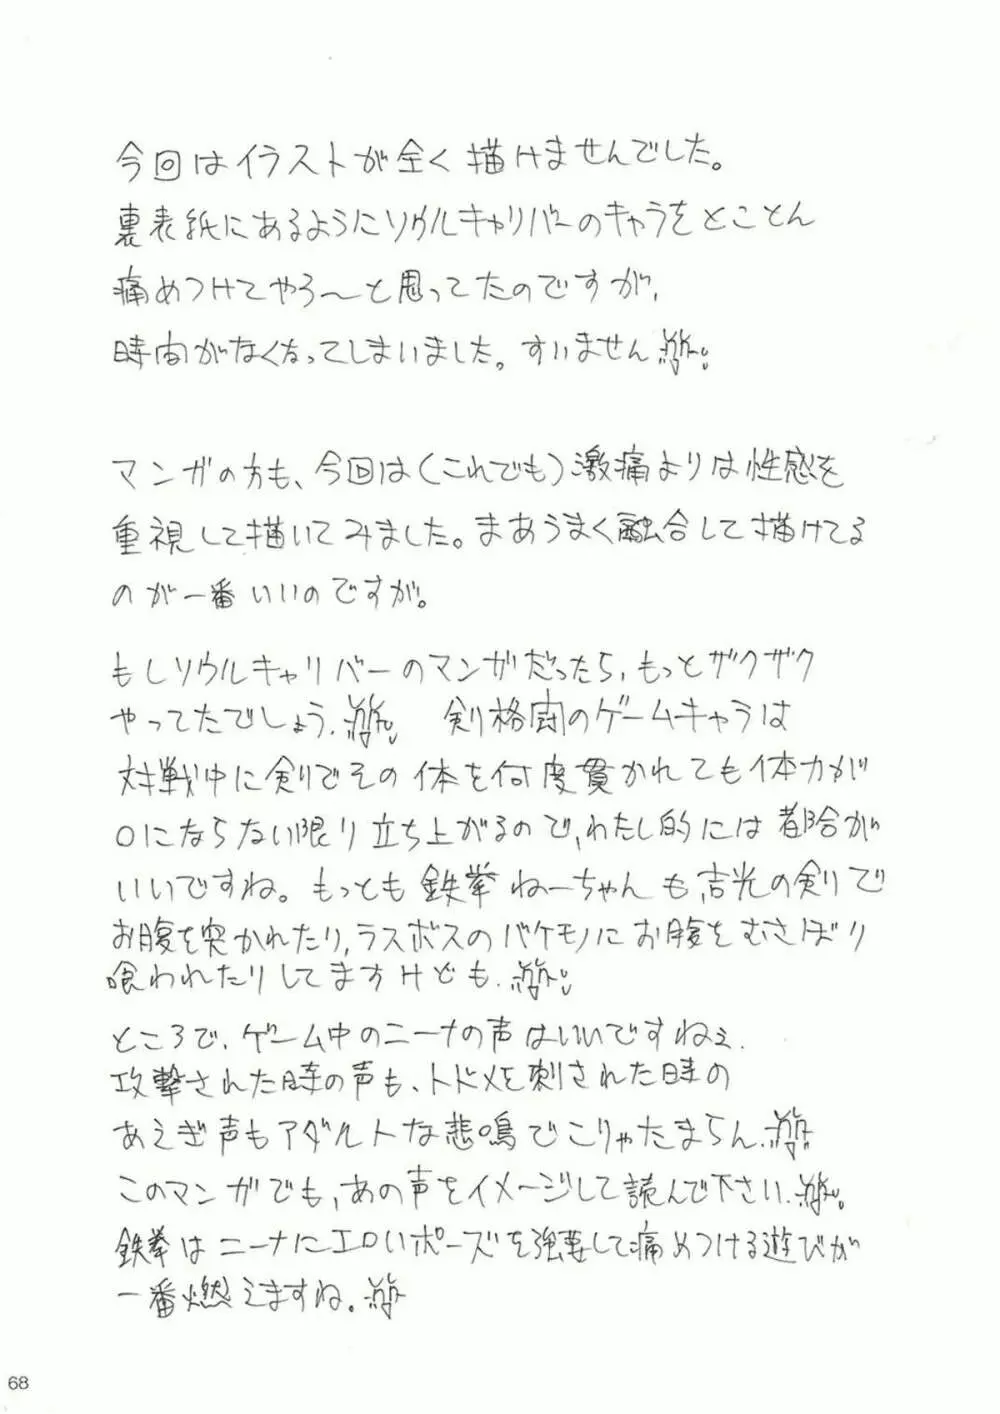 今回はイラストが全く描けませんでした。
裏表紙にあるようにソウルキャリバーのキャラをとことん
痛めつけてやろ〜と思ってたのですが、
時間がなくなってしまいました。すいません
マンガの方も、今回は(これでも)激痛よりは性感を
重視して描いてみました。まあうまく融合して描けてる
のが一番いいのですが。
もしソウルキャリバーのマンガだったら、もっとザクザク
やってたでしょう、 剣格闘のゲームキャラは
対戦中に剣でその体を何度貫かれても体力が
0にならない限り立ち上がるので、わたし的には都合が
いいですね。もっとも鉄拳ねーちゃんも、吉光の剣で
お腹を突かれたり、ラスボスのバケモノにお腹をむさぼり
喰われたりしてますけども、
ところで、ゲーム中のニーナの声はいいですねぇ、
攻撃された時の声も、トドメを刺された時の
あえぎ声もアダルトな悲鳴でこりゃたまらん、
このマンガでも、あの声をイメージして読んで下さい、
鉄拳はニーナにエロいポーズを強要して痛めつける遊びが
一番燃えますね。
68